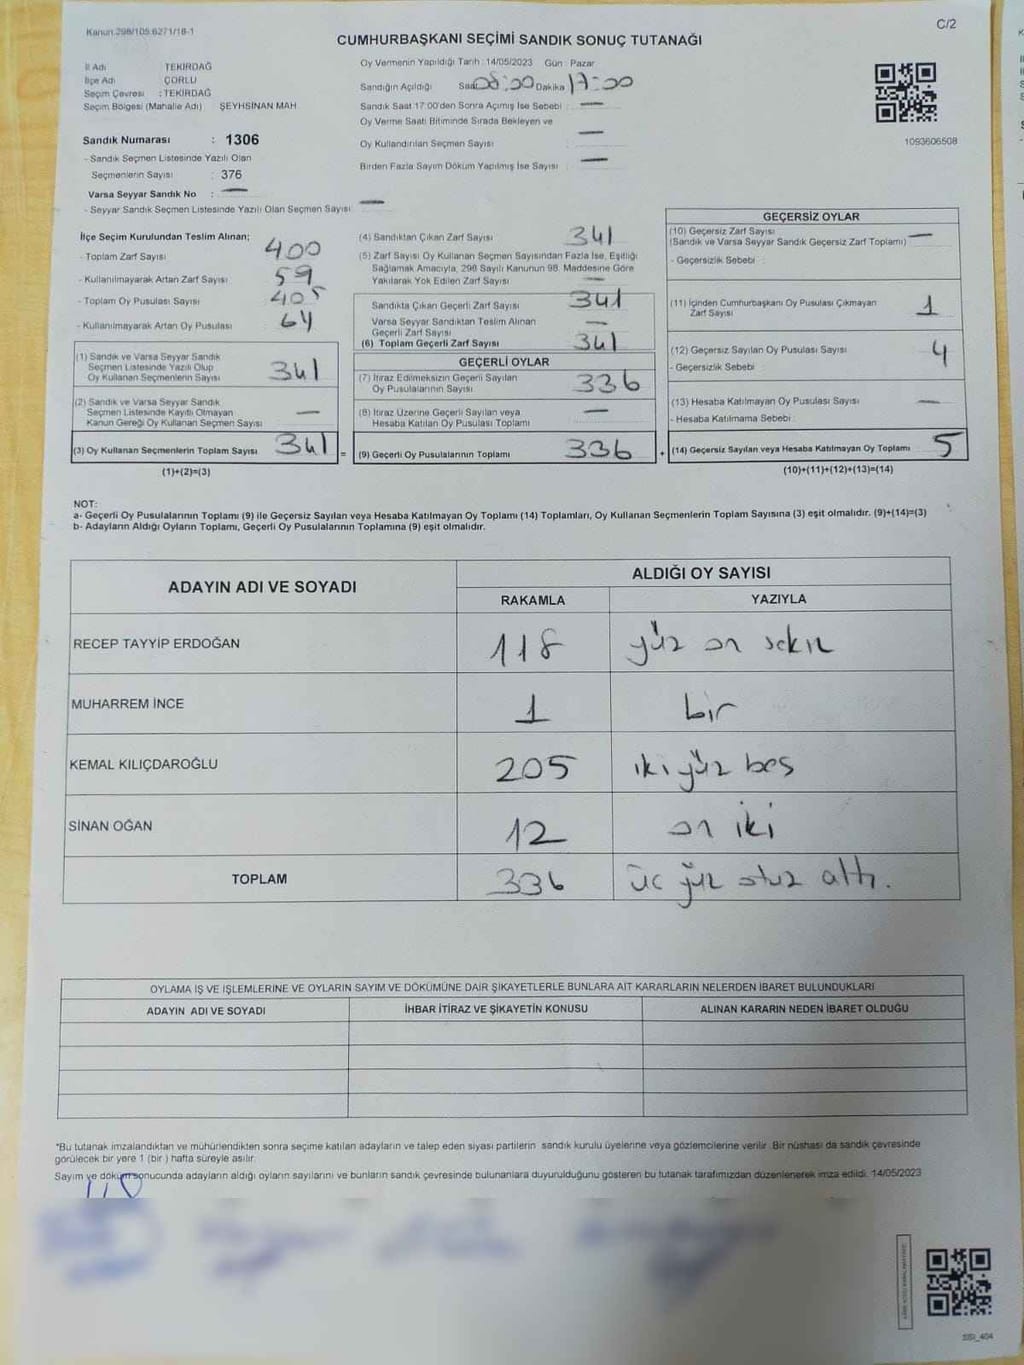 Kanun:298/105:6271/18-1
C/2
CUMHURBAŞKANI SEÇİMİ SANDIK SONUÇ TUTANAĞI
İl Adı TEKİRDAĞ
İlçe Adı ÇORLU
Seçim Çevresi : TEKİRDAĞ
Seçim Bölgesi (Mahalle Adı) ŞEYHSİNAN MAH
Oy Vermenin Yapıldığı Tarih : 14/05/2023 Gün : Pazar
Sandığın Açıldığı Saat 08:00 Dakika 17:00
Sandık Saat 17:00'den Sonra Açılmış İse Sebebi : —
Oy Verme Saati Bitiminde Sırada Bekleyen ve
Oy Kullandırılan Seçmen Sayısı : —
Birden Fazla Sayım Döküm Yapılmış İse Sayısı : —
1093606508
Sandık Numarası : 1306
- Sandık Seçmen Listesinde Yazılı Olan
Seçmenlerin Sayısı : 376
Varsa Seyyar Sandık No : —
- Seyyar Sandık Seçmen Listesinde Yazılı Olan Seçmen Sayısı : —
İlçe Seçim Kurulundan Teslim Alınan;
- Toplam Zarf Sayısı 400
- Kullanılmayarak Artan Zarf Sayısı 59
- Toplam Oy Pusulası Sayısı 405
- Kullanılmayarak Artan Oy Pusulası 64
(1) Sandık ve Varsa Seyyar Sandık
Seçmen Listesinde Yazılı Olup
Oy Kullanan Seçmenlerin Sayısı 341
(2) Sandık ve Varsa Seyyar Sandık
Seçmen Listesinde Kayıtlı Olmayan
Kanun Gereği Oy Kullanan Seçmen Sayısı —
(3) Oy Kullanan Seçmenlerin Toplam Sayısı 341 =
(1)+(2)=(3)
(4) Sandıktan Çıkan Zarf Sayısı 341
(5) Zarf Sayısı Oy Kullanan Seçmen Sayısından Fazla İse, Eşitliği
Sağlamak Amacıyla, 298 Sayılı Kanunun 98. Maddesine Göre
Yakılarak Yok Edilen Zarf Sayısı —
Sandıkta Çıkan Geçerli Zarf Sayısı 341
Varsa Seyyar Sandıktan Teslim Alınan
Geçerli Zarf Sayısı —
(6) Toplam Geçerli Zarf Sayısı 341
GEÇERLİ OYLAR
(7) İtiraz Edilmeksizin Geçerli Sayılan
Oy Pusulalarının Sayısı 336
(8) İtiraz Üzerine Geçerli Sayılan veya
Hesaba Katılan Oy Pusulası Toplamı —
(9) Geçerli Oy Pusulalarının Toplamı 336 +
GEÇERSİZ OYLAR
(10) Geçersiz Zarf Sayısı —
(Sandık ve Varsa Seyyar Sandık Geçersiz Zarf Toplamı)
- Geçersizlik Sebebi :
(11) İçinden Cumhurbaşkanı Oy Pusulası Çıkmayan
Zarf Sayısı 1
(12) Geçersiz Sayılan Oy Pusulası Sayısı 4
- Geçersizlik Sebebi
(13) Hesaba Katılmayan Oy Pusulası Sayısı —
- Hesaba Katılmama Sebebi :
(14) Geçersiz Sayılan veya Hesaba Katılmayan Oy Toplamı 5
(10)+(11)+(12)+(13)=(14)
NOT:
a- Geçerli Oy Pusulalarının Toplamı (9) ile Geçersiz Sayılan veya Hesaba Katılmayan Oy Toplamı (14) Toplamları, Oy Kullanan Seçmenlerin Toplam Sayısına (3) eşit olmalıdır. (9)+(14)=(3)
b- Adayların Aldığı Oyların Toplamı, Geçerli Oy Pusulalarının Toplamına (9) eşit olmalıdır.
ADAYIN ADI VE SOYADI
ALDIĞI OY SAYISI
RAKAMLA YAZIYLA
RECEP TAYYİP ERDOĞAN 118 yüz on sekiz
MUHARREM İNCE 1 bir
KEMAL KILIÇDAROĞLU 205 iki yüz beş
SİNAN OĞAN 12 on iki
TOPLAM 336 üç yüz otuz altı.
OYLAMA İŞ VE İŞLEMLERİNE VE OYLARIN SAYIM VE DÖKÜMÜNE DAİR ŞİKAYETLERLE BUNLARA AİT KARARLARIN NELERDEN İBARET BULUNDUKLARI
ADAYIN ADI VE SOYADI İHBAR İTİRAZ VE ŞİKAYETİN KONUSU ALINAN KARARIN NEDEN İBARET OLDUĞU
*Bu tutanak imzalandıktan ve mühürlendikten sonra seçime katılan adayların ve talep eden siyasi partilerin sandık kurulu üyelerine veya gözlemcilerine verilir. Bir nüshası da sandık çevresinde
görülecek bir yere 1 (bir ) hafta süreyle asılır.
Sayım ve döküm sonucunda adayların aldığı oyların sayılarını ve bunların sandık çevresinde bulunanlara duyurulduğunu gösteren bu tutanak tarafımızdan düzenlenerek imza edildi. 14/05/2023
SSI_404